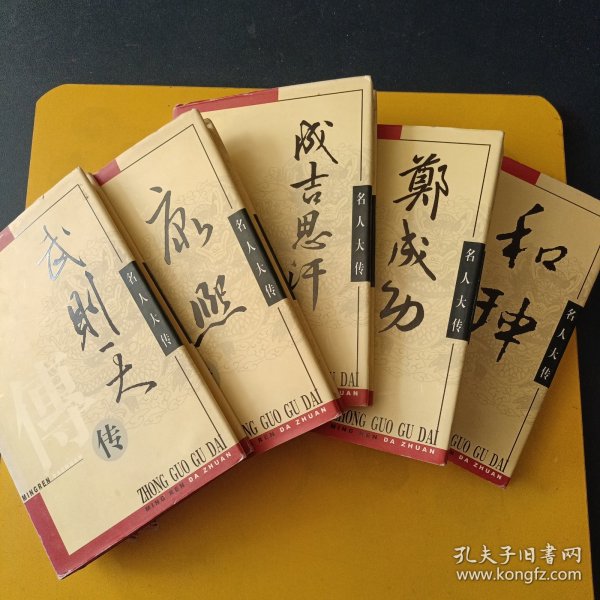 武则天
传
名人大传
傳
MINGREN
ZHONG GUO GU DAI
MING REN DA ZHUAN
康熙
名人大传
ZHONG GUO GU DAI
MING REN DA ZHUAN
成吉思汗
名人大传
DAI
鄭成功
名人大传
ZHONG GUO GU DAI
MING REN DA ZHUAN
和珅
名人大传
GUO GU DAI
REN DA ZHUAN
孔夫子旧书网
www.kongfz.com